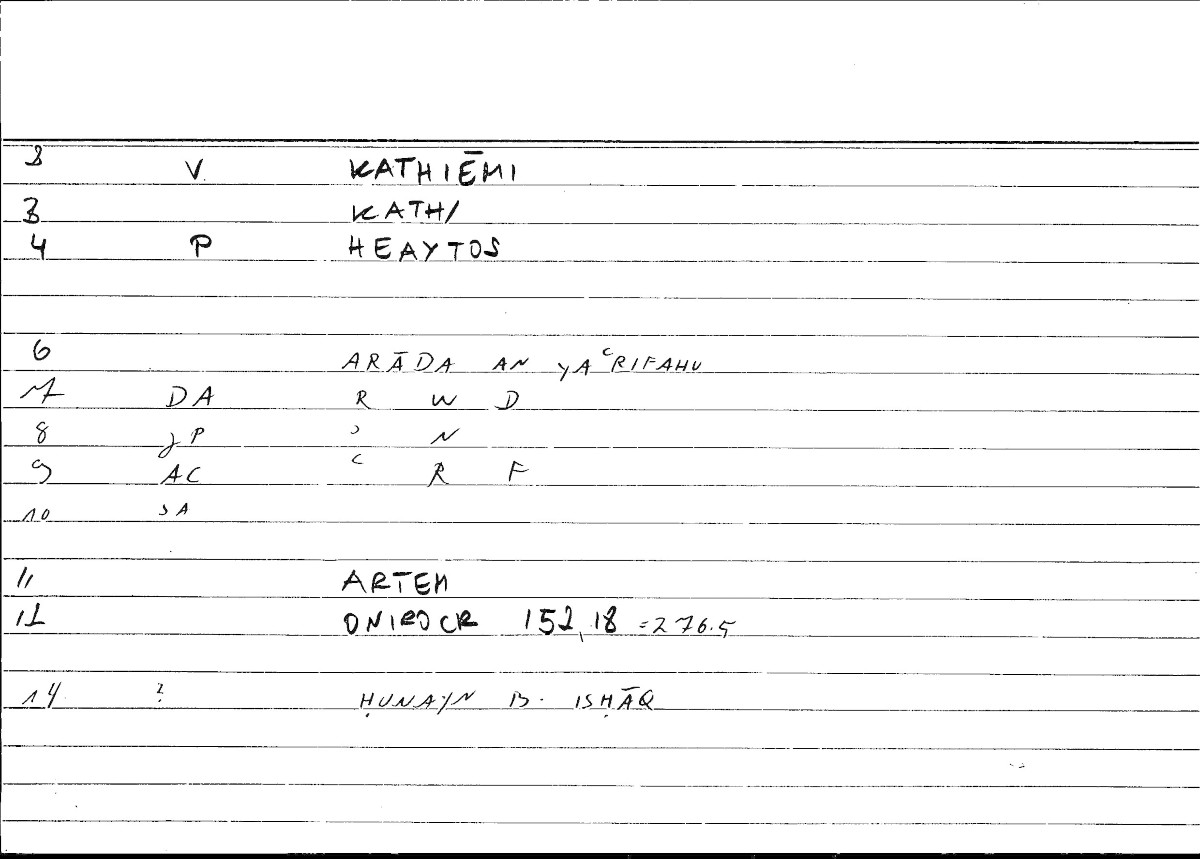 2 V KATHIĒMI
3 KATH/
4 P HEAYTOS
6 ARĀDA AN YAʿRIFAHU
7 DA R W D
8 JP ʾ N
9 AC ʿ R F
10 SA
11 ARTEM
12 ONIROCR 152,18 =276.5
14 ? ḤUNAYN B. ISḤĀQ